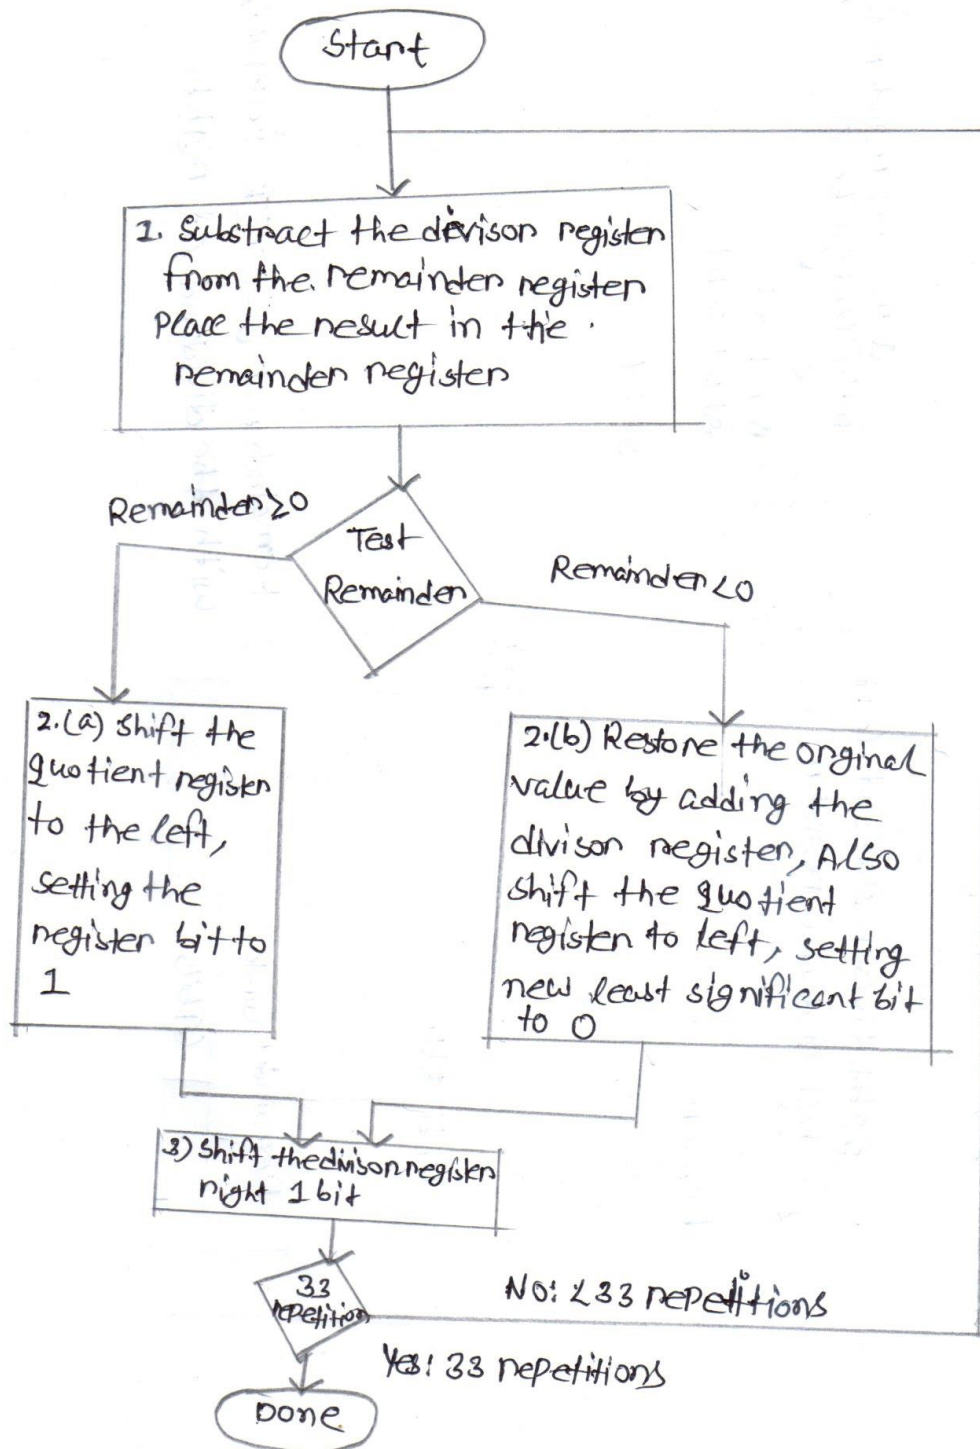 Start
1. Substract the divison register
from the remainder register
Place the result in the
remainder register
Remainder ≥0
Test
Remainder
Remainder <0
2.(a) Shift the
quotient register
to the left,
setting the
register bit to
1
2.(b) Restore the orginal
value by adding the
divison register, Also
shift the quotient
register to left, setting
new least significant bit
to 0
3) Shift the divison register
right 1 bit
33
repetition
No: <33 repetitions
Yes: 33 repetitions
Done